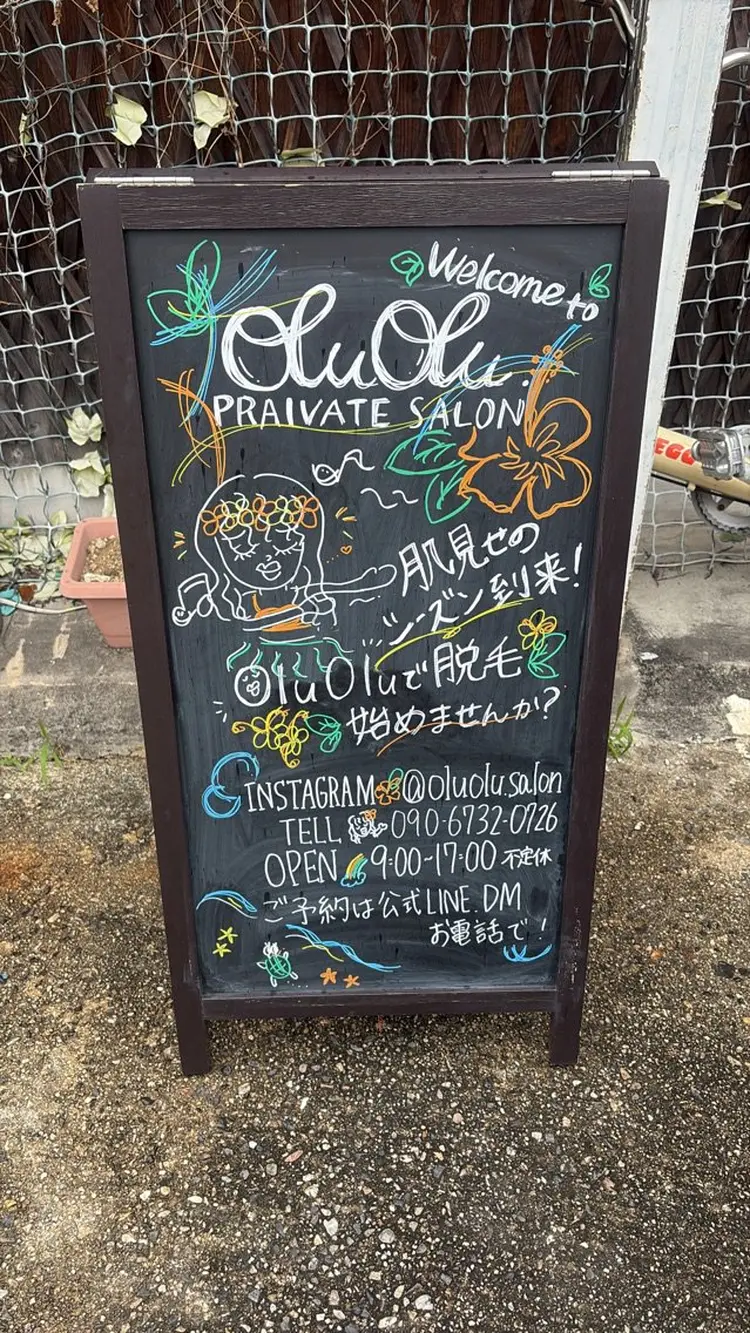 Welcome to
OluOlu.
PRAIVATE SALON
肌見せの
シーズン到来！
OluOluで脱毛
始めませんか？
INSTAGRAM @oluolu.salon
TELL 090-6732-0726
OPEN 9:00~17:00 不定休
ご予約は公式LINE.DM
お電話で！
EGG